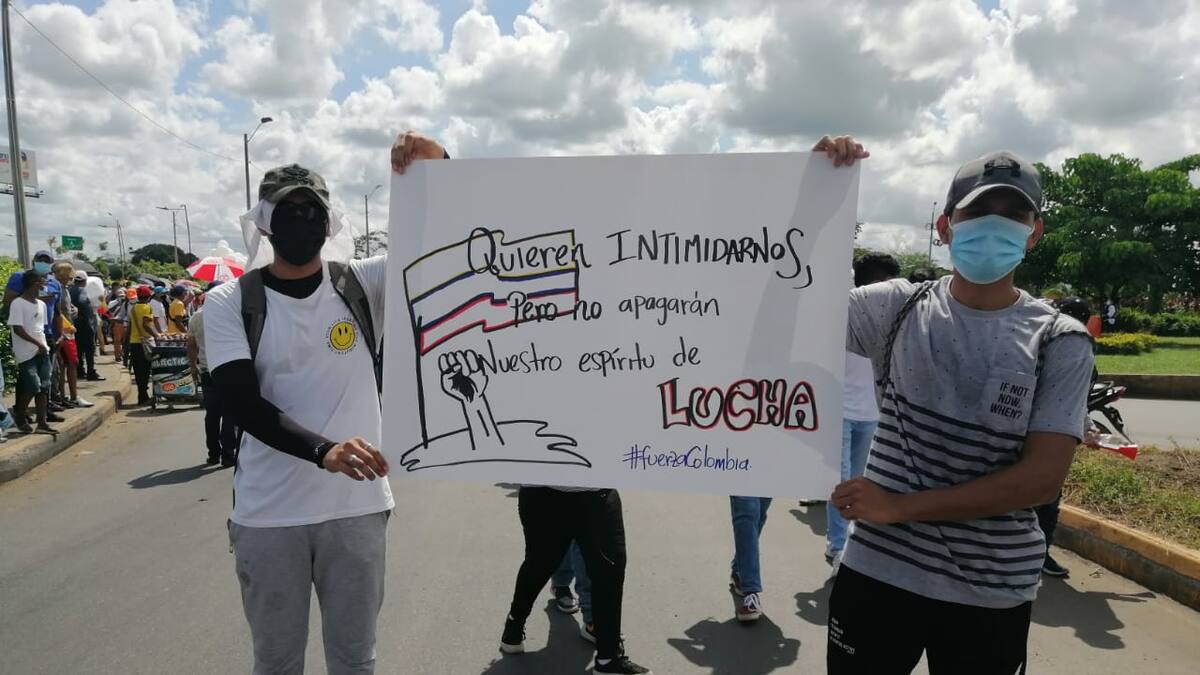 Quieren INTIMIDARNOS,
Pero no apagarán
Nuestro espíritu de
LUCHA
#fuerzaColombia.
IF NOT
NOW,
WHEN?